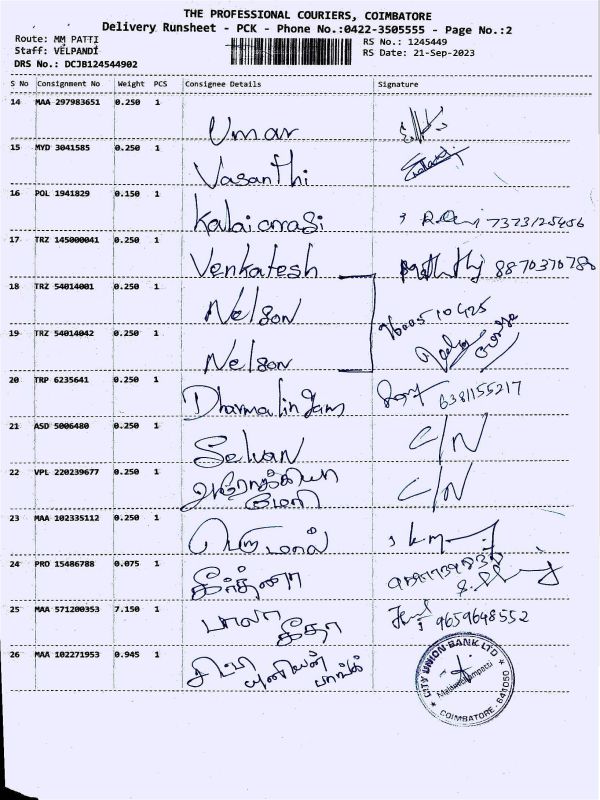 THE PROFESSIONAL COURIERS, COIMBATORE
Delivery Runsheet - PCK - Phone No.:0422-3505555 - Page No.:2
Route: MM PATTI
Staff: VELPANDI
DRS No.: DCJB124544902
RS No.: 1245449
RS Date: 21-Sep-2023
S No Consignment No Weight PCS Consignee Details Signature
14 MAA 297983651 0.250 1 Umar
15 MYD 3041585 0.250 1 Vasanthi
16 POL 1941829 0.150 1 Kalaiarasi 7373125456
17 TRZ 145000041 0.250 1 Venkatesh 8870370780
18 TRZ 54014001 0.250 1 Nelson 7600510425
19 TRZ 54014042 0.250 1 Nelson
20 TRP 6235641 0.250 1 Dharmalingam 6381155217
21 ASD 5006480 0.250 1 Selvan C/N
22 VPL 220239677 0.250 1 ஆரோக்கிய மேரி C/N
23 MAA 102335112 0.250 1 பெருமாள்
24 PRO 15486788 0.075 1 கீர்த்னா
25 MAA 571200353 7.150 1 பாலா கீதா 9659648552
26 MAA 102271953 0.945 1 சிட்டி யூனியன் பாங்க்
CITY UNION BANK LTD
COIMBATORE - 641050